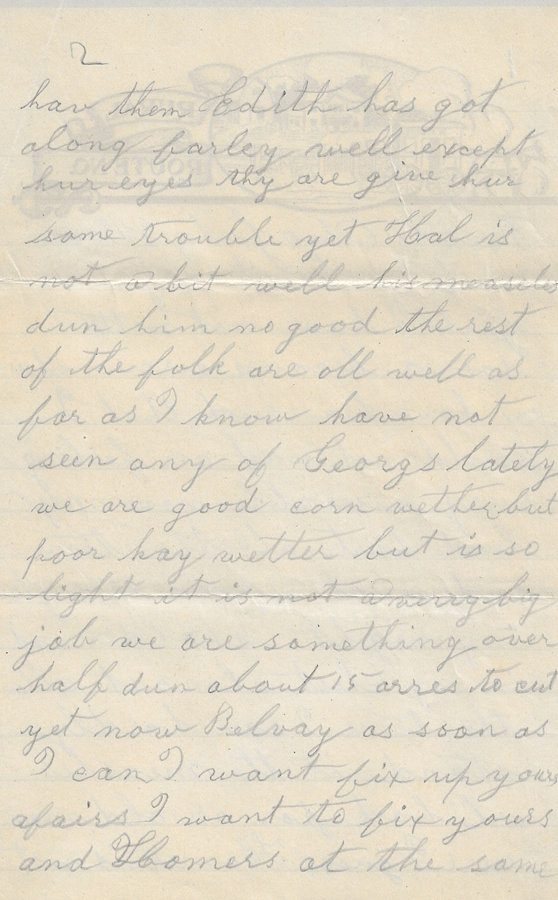 2
hav them Edith has got
along farley well except
hur eyes thy are give hur
some trouble yet Hal is
not a bit well his measles
dun him no good the rest
of the folk are all well as
far as I know have not
seen any of Georgs lately
we are good corn wether but
poor hay wetter but is so
light it is not a verry big
job we are something over
half dun about 15 arres to cut
yet now Belvay as soon as
I can I want fix up yours
afairs I want to fix yours
and Homers at the same